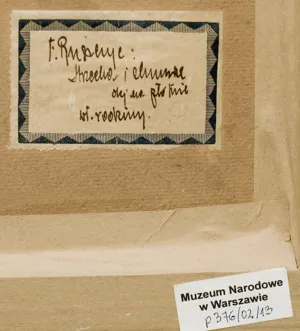 F. Ruszczyc:
Strzecha i chmura
olej na płótnie
wł. rodziny.
Muzeum Narodowe
w Warszawie
p 376/02/13